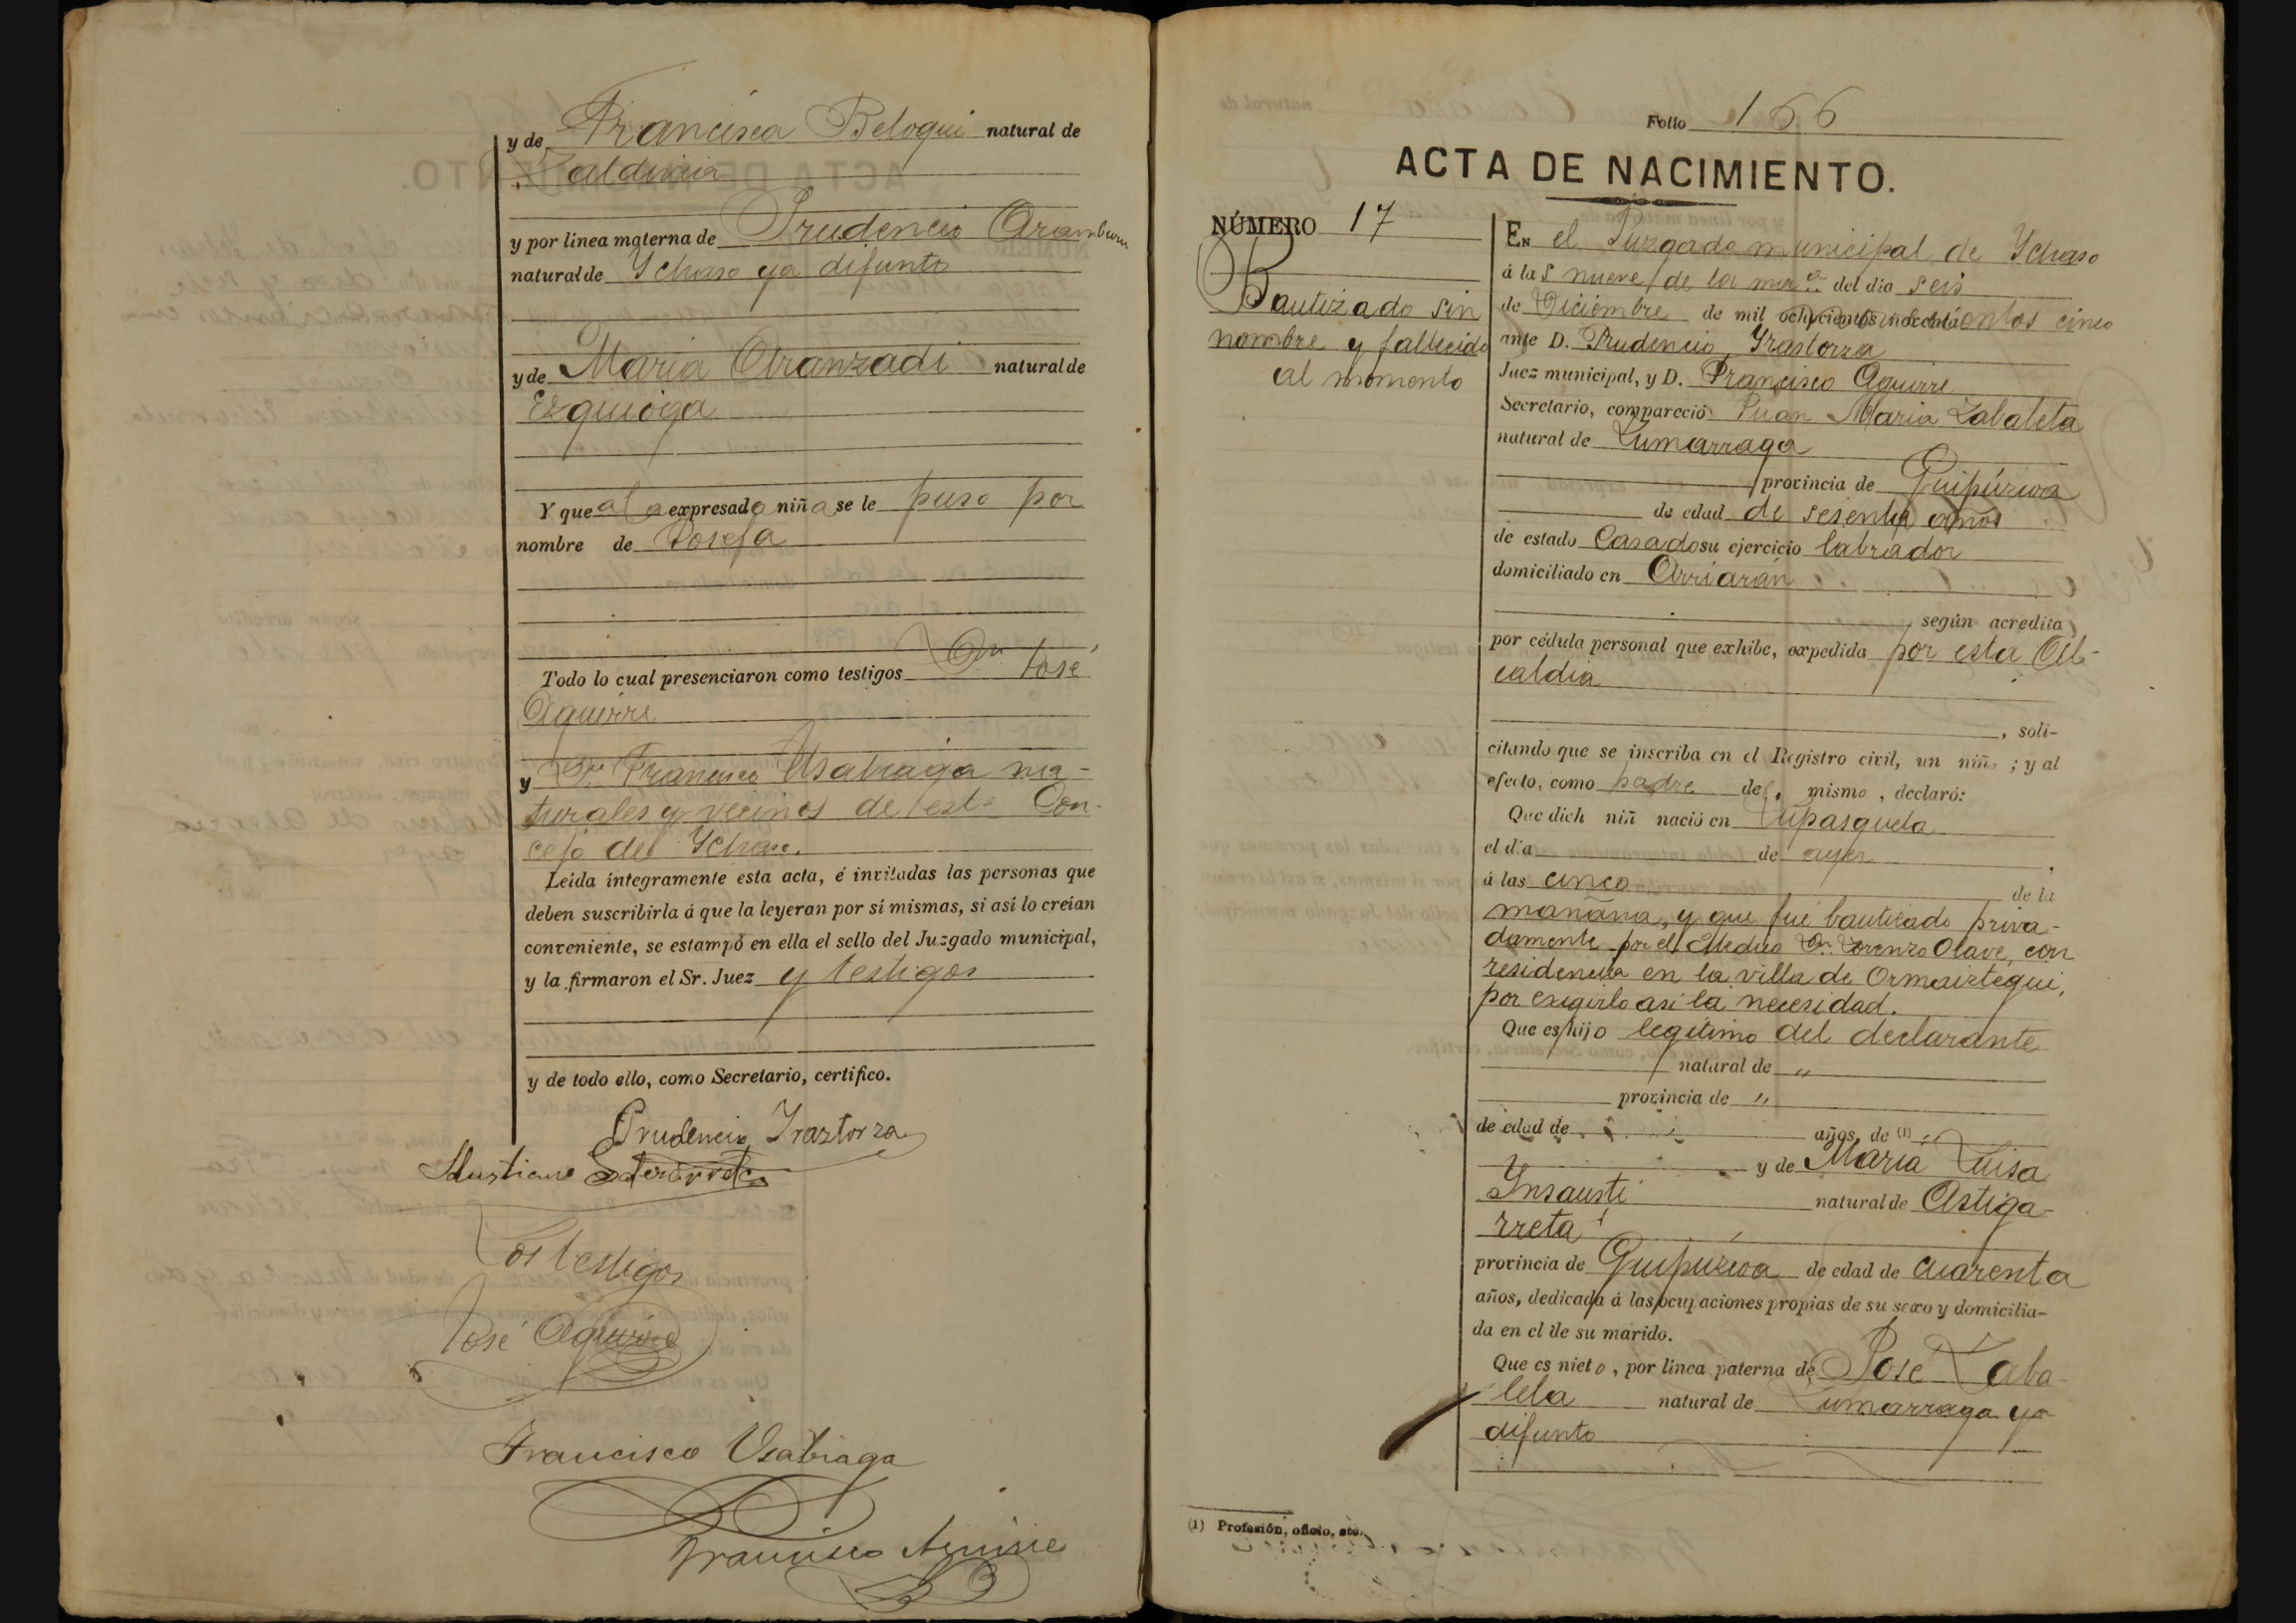 y de Francisca Beloqui natural de
Zaldivia
y por línea materna de Prudencio Aramburu
natural de Ychaso ya difunto
y de Maria Aranzadi natural de
Ezquioga
Y que a la expresada niña se le puso por
nombre de Josefa
Todo lo cual presenciaron como testigos Dn José
Aguirre
y Dn Francisco Usabiaga na-
turales y vecinos de este Con-
cejo de Ychaso.
Leída íntegramente esta acta, é invitadas las personas que
deben suscribirla á que la leyeran por sí mismas, si así lo creían
conveniente, se estampó en ella el sello del Juzgado municipal,
y la firmaron el Sr. Juez y testigos
y de todo ello, como Secretario, certifico.
Prudencio Yraztorza
Los testigos
José Aguirre
Francisco Usabiaga
Francisco Aguirre
Folio 166
ACTA DE NACIMIENTO.
NÚMERO 17
Bautizado sin
nombre y fallecido
al momento
EN el Juzgado municipal de Ychaso
á las nueve de la mña del día seis
de Diciembre de mil novecientos cinco
ante D. Prudencio Yrastorza
Juez municipal, y D. Francisco Aguirre
Secretario, compareció Juan Maria Zabaleta
natural de Zumarraga
provincia de Guipúzcoa
de edad de sesenta años
de estado Casado su ejercicio labrador
domiciliado en Arriarán
según acredita
por cédula personal que exhibe, expedida por esta Al-
caldia
, soli-
citando que se inscriba en el Registro civil, un niño ; y al
efecto, como padre del mismo , declaró:
Que dich niñ nació en Lupasqueta
el día de ayer
á las cinco de la
mañana, y que fué bautizado priva-
damente por el Médico Dn Lorenzo Olave, con
residencia en la villa de Ormaiztegui,
por exigirlo asi la necesidad.
Que es hijo legítimo del declarante
natural de "
provincia de "
de edad de años, de (1)
y de Maria Luisa
Ynsausti natural de Astiga-
rreta
provincia de Guipúzcoa de edad de cuarenta
años, dedicada á las ocupaciones propias de su sexo y domicilia-
da en el de su marido.
Que es nieto, por línea paterna de José Zaba-
leta natural de Zumarraga ya
difunto
(1) Profesión, oficio, etc.